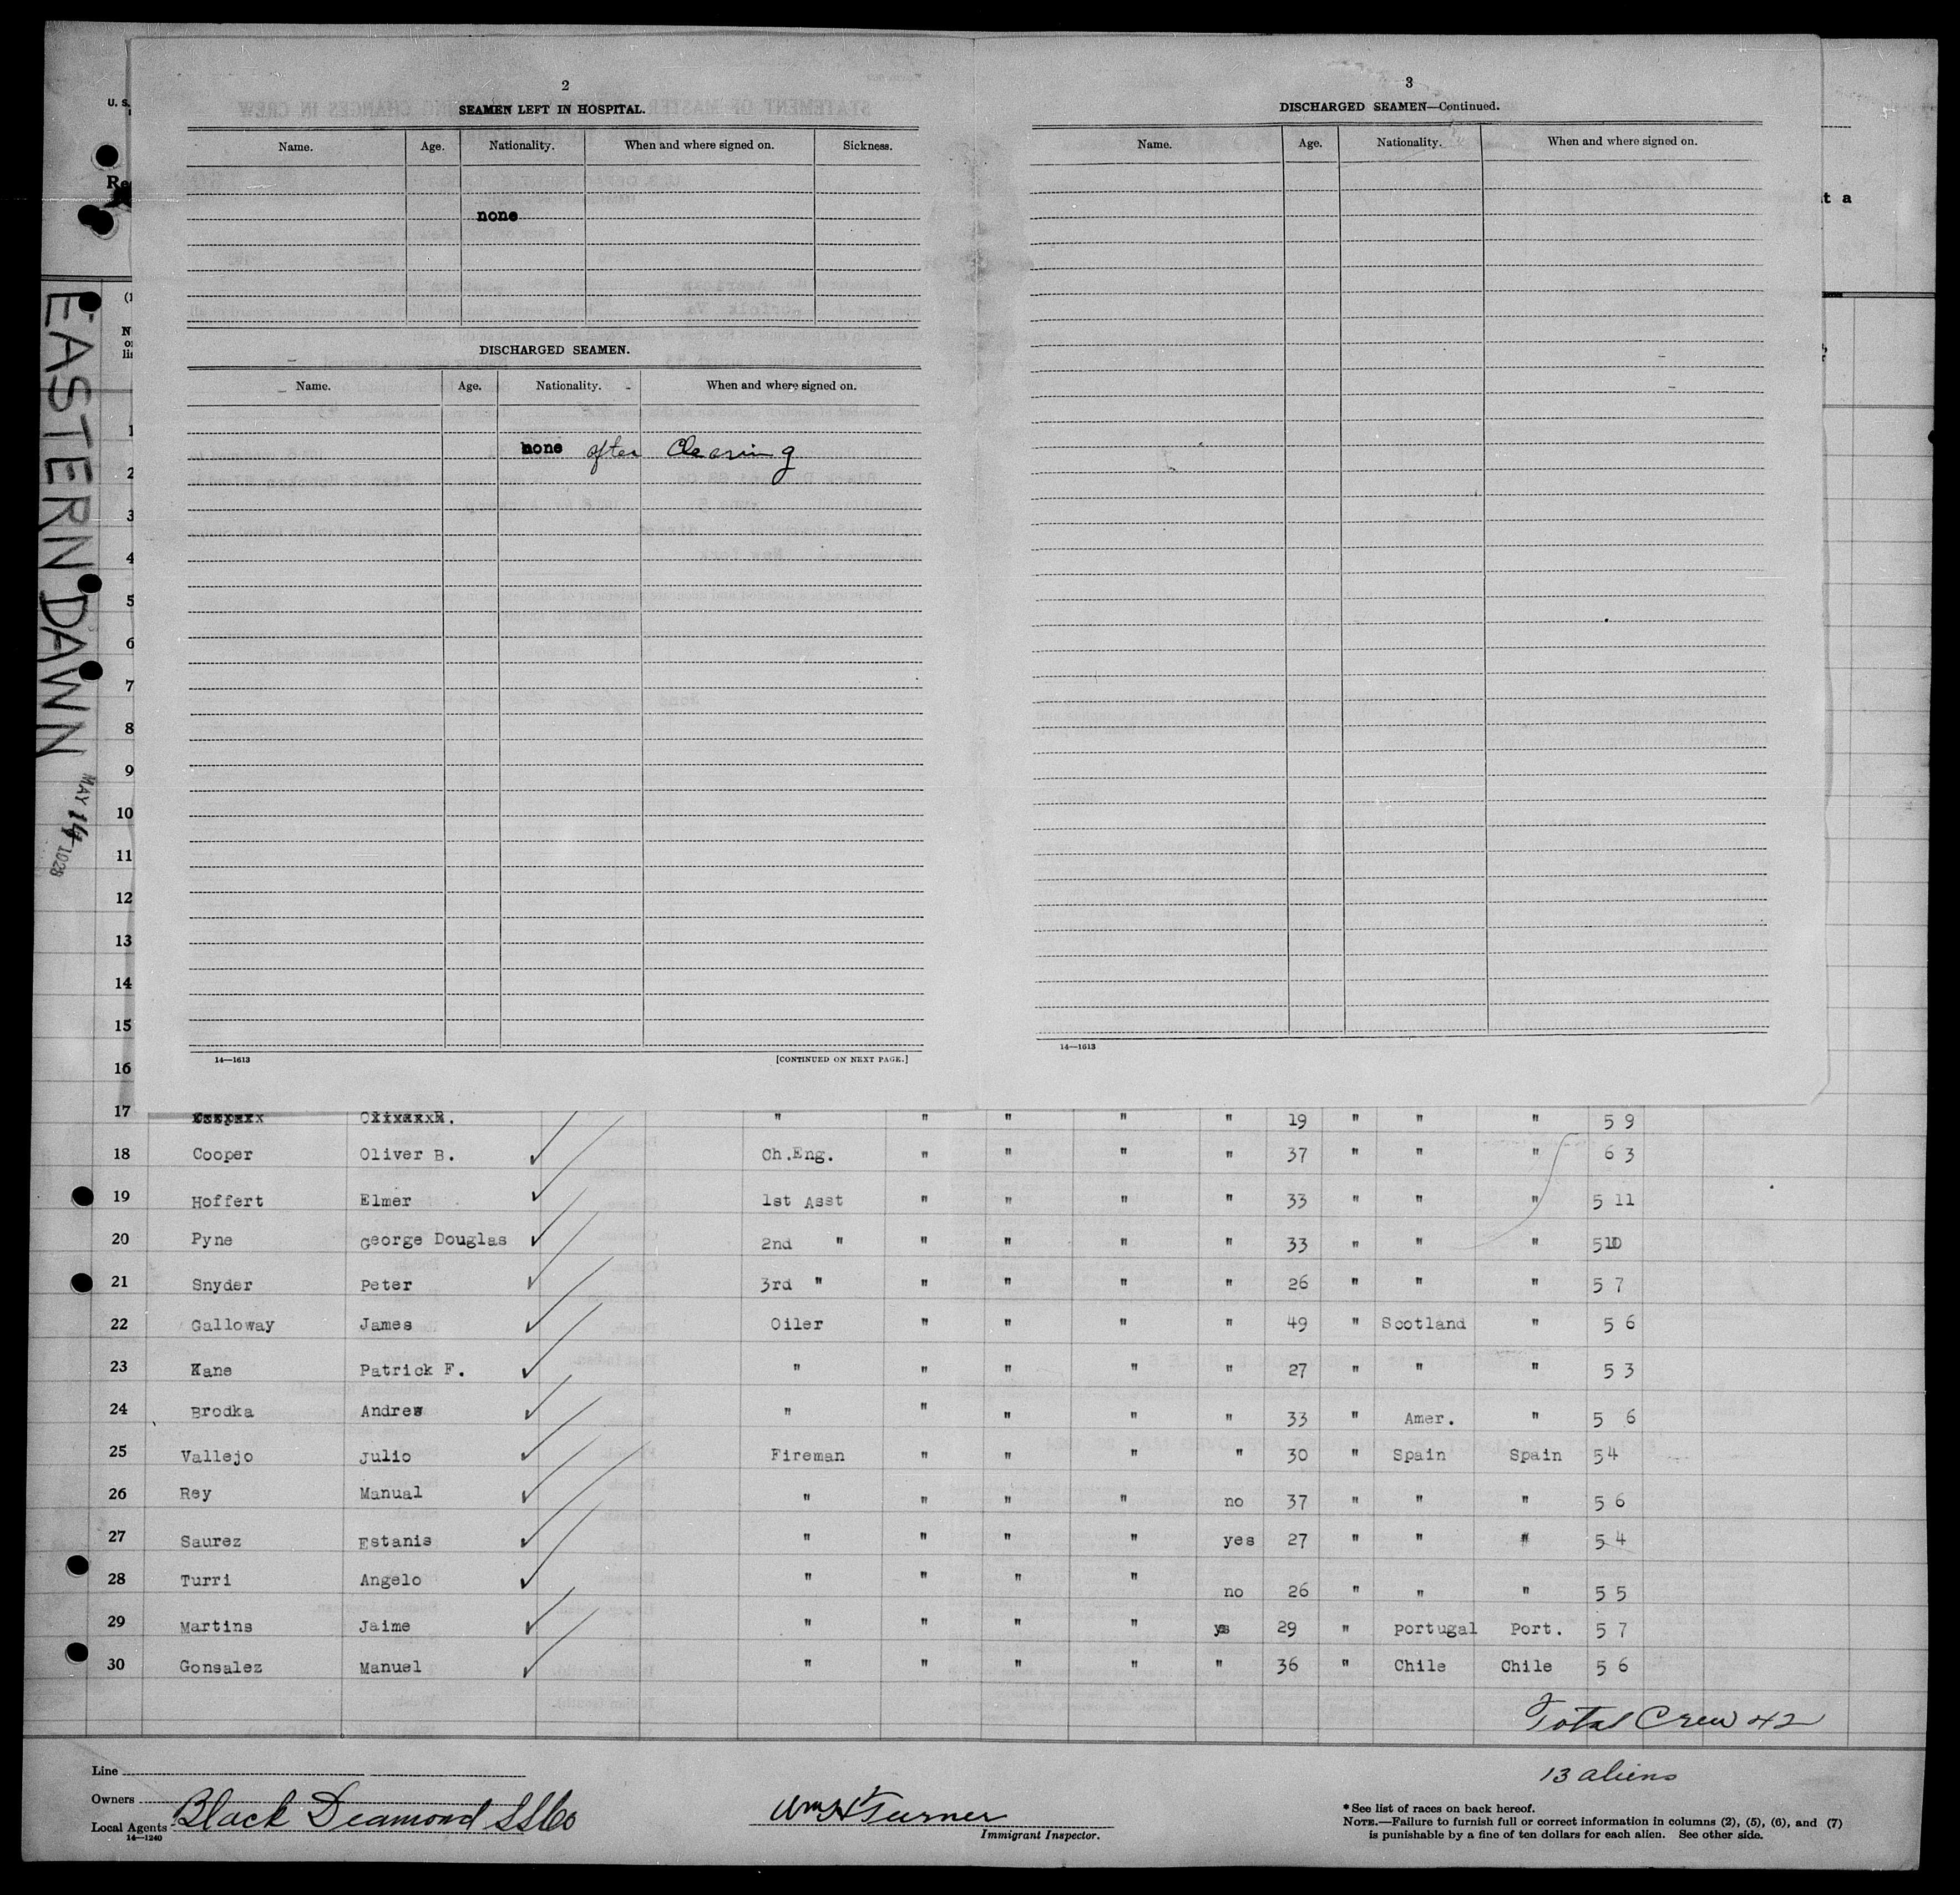 2
SEAMEN LEFT IN HOSPITAL.
Name. Age. Nationality. When and where signed on. Sickness.
none
DISCHARGED SEAMEN.
Name. Age. Nationality. When and where signed on.
none after Clearing
14—1613 [CONTINUED ON NEXT PAGE.]
3
DISCHARGED SEAMEN—Continued.
Name. Age. Nationality. When and where signed on.
14—1613
U. S.
Re
t a
(1
N
o
li
EASTERN DAWN
MAY 14 1928
1
2
3
4
5
6
7
8
9
10
11
12
13
14
15
16
17 " " " " " 19 " " " 5 9
18 Cooper Oliver B. Ch.Eng. " " " " 37 " " " 6 3
19 Hoffert Elmer 1st Asst " " " " 33 " " " 5 11
20 Pyne George Douglas 2nd " " " " " 33 " " " 5 10
21 Snyder Peter 3rd " " " " " 26 " " " 5 7
22 Galloway James Oiler " " " " 49 " Scotland " 5 6
23 Kane Patrick F. " " " " " 27 " " " 5 3
24 Brodka Andrew " " " " " 33 " Amer. " 5 6
25 Vallejo Julio Fireman " " " " 30 " Spain Spain 5 4
26 Rey Manual " " " " no 37 " " " 5 6
27 Saurez Estanis " " " " yes 27 " " " 5 4
28 Turri Angelo " " " " no 26 " " " 5 5
29 Martins Jaime " " " " yes 29 " portugal Port. 5 7
30 Gonsalez Manuel " " " " " 36 " Chile Chile 5 6
Total Crew 42
13 aliens
Line
Owners
Local Agents Black Deamond SSCo
14—1240
Wm H Turner
Immigrant Inspector.
* See list of races on back hereof.
NOTE.—Failure to furnish full or correct information in columns (2), (5), (6), and (7)
is punishable by a fine of ten dollars for each alien. See other side.